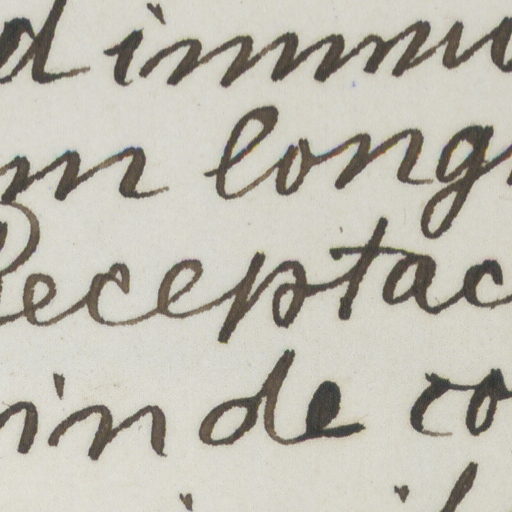 d immu
m long
Receptac
inde co